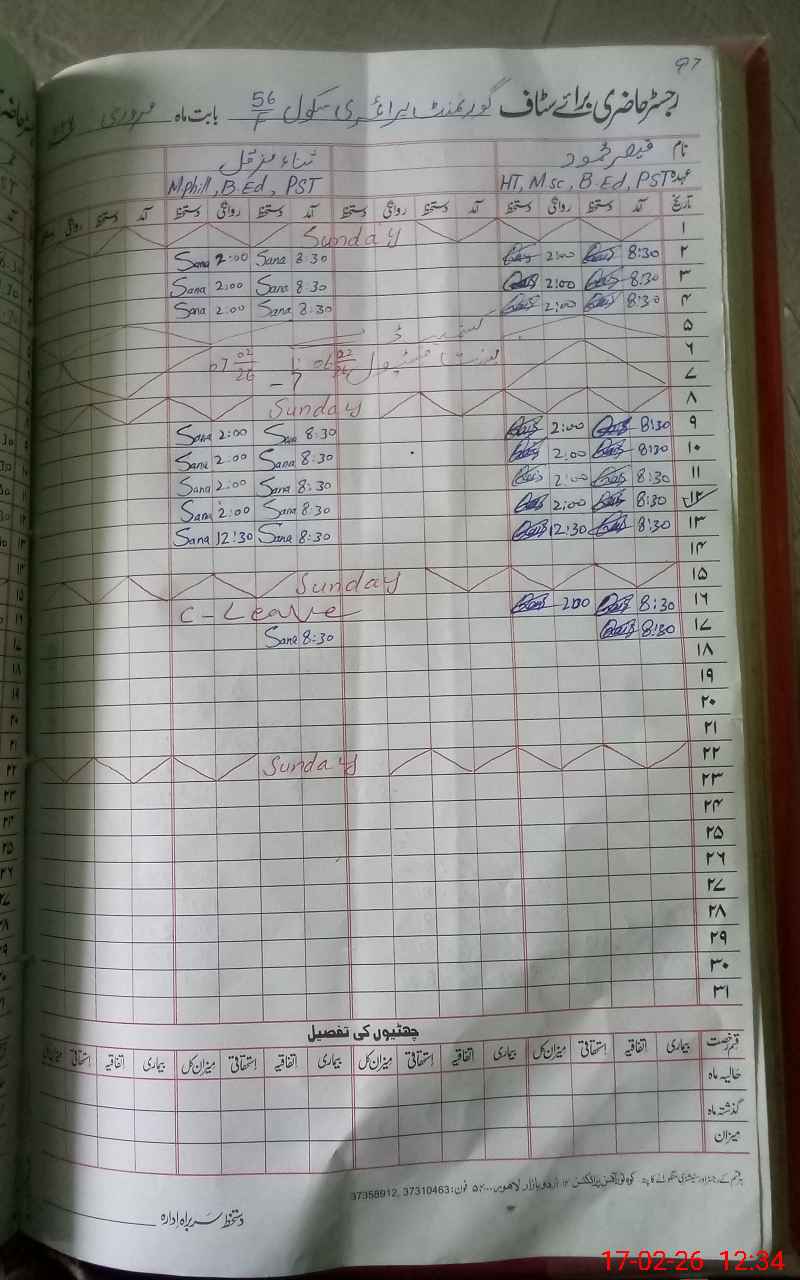 97
رجسٹر حاضری برائے سٹاف گورنمنٹ پرائمری سکول 56/F بابت ماہ فروری
نام قیصر محمود ثناء مزمل
عہدہ HT, M.sc, B.Ed, PST M.phill, B.Ed, PST
تاریخ آمد دستخط روانگی دستخط آمد دستخط روانگی دستخط آمد دستخط روانگی دستخط آمد دستخط روانگی
۱ Sunday
۲ 8:30 2:00 8:30 Sana 2:00 Sana
۳ 8:30 2:00 8:30 Sana 2:00 Sana
۴ 8:30 2:00 8:30 Sana 2:00 Sana
۵ کشمیر ڈے
۶ بسنت فیسٹیول 06 02/26 07 02/26
۷
۸ Sunday
۹ 8:30 2:00 8:30 Sana 2:00 Sana
۱۰ 8:30 2:00 8:30 Sana 2:00 Sana
۱۱ 8:30 2:00 8:30 Sana 2:00 Sana
۱۲ 8:30 2:00 8:30 Sana 2:00 Sana
۱۳ 8:30 12:30 8:30 Sana 12:30 Sana
۱۴
۱۵ Sunday
۱۶ 8:30 2:00 C-Leave
۱۷ 8:30 8:30 Sana
۱۸
۱۹
۲۰
۲۱
۲۲ Sunday
۲۳
۲۴
۲۵
۲۶
۲۷
۲۸
۲۹
۳۰
۳۱
چھٹیوں کی تفصیل
قسم رخصت بیماری اتفاقیہ استحقاقی میزان کل بیماری اتفاقیہ استحقاقی میزان کل بیماری اتفاقیہ استحقاقی میزان کل بیماری اتفاقیہ استحقاقی میزان کل
حالیہ ماہ
گذشتہ ماہ
میزان
ہر قسم کے رجسٹر اور سٹیشنری منگوانے کا پتہ اردو بازار لاہور فون: 37310463, 37358912
دستخط سربراہ ادارہ
17-02-26 12:34